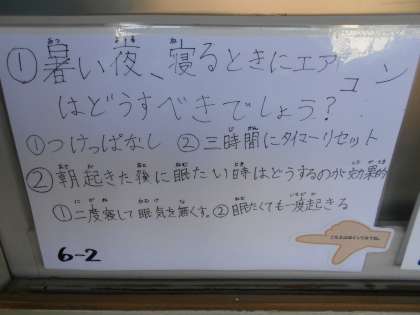 ①暑い夜、寝るときにエアコン
はどうすべきでしょう?
①つけっぱなし ②三時間にタイマーリセット
②朝起きた後に眠たい時はどうするのが効果的
①二度寝して眠気を無くす。②眠たくても一度起きる
6-2